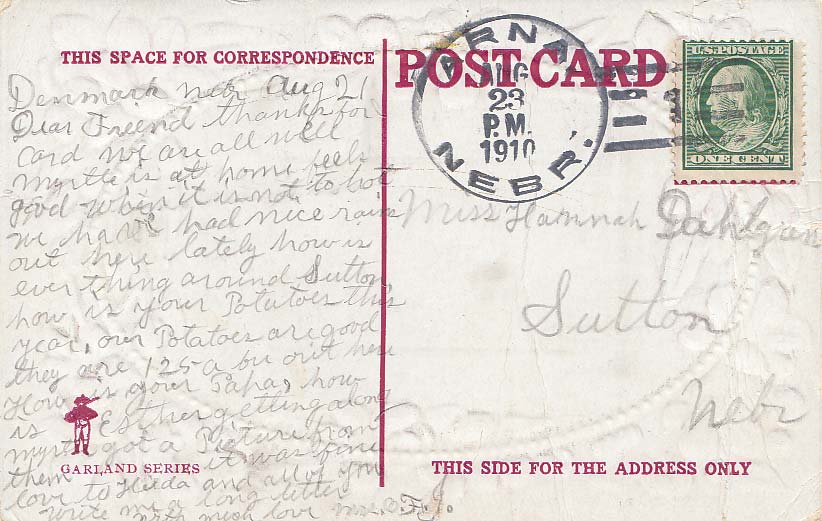 THIS SPACE FOR CORRESPONDENCE
POST CARD
ARNA
AUG
23
P.M.
1910
NEBR.
U.S. POSTAGE
ONE CENT
Denmark Nebr Aug 21
Dear Freend thanks for
Card we are all well
myrtle is at home feels
good when it is not to hot
we have had nice rains
out here lately how is
ever thing around Sutton,
how is your Potatoes this
year, our Potatoes are good
they are 1.25 a bu out here
How is your Papa, how
is Esther getting along
myrtle got a Picture from
them it was fine
love to Hilda and all of you
write me a long letter
with much love Mrs. F. J.
Miss Hannah Dahlgren
Sutton
Nebr
GARLAND SERIES
THIS SIDE FOR THE ADDRESS ONLY